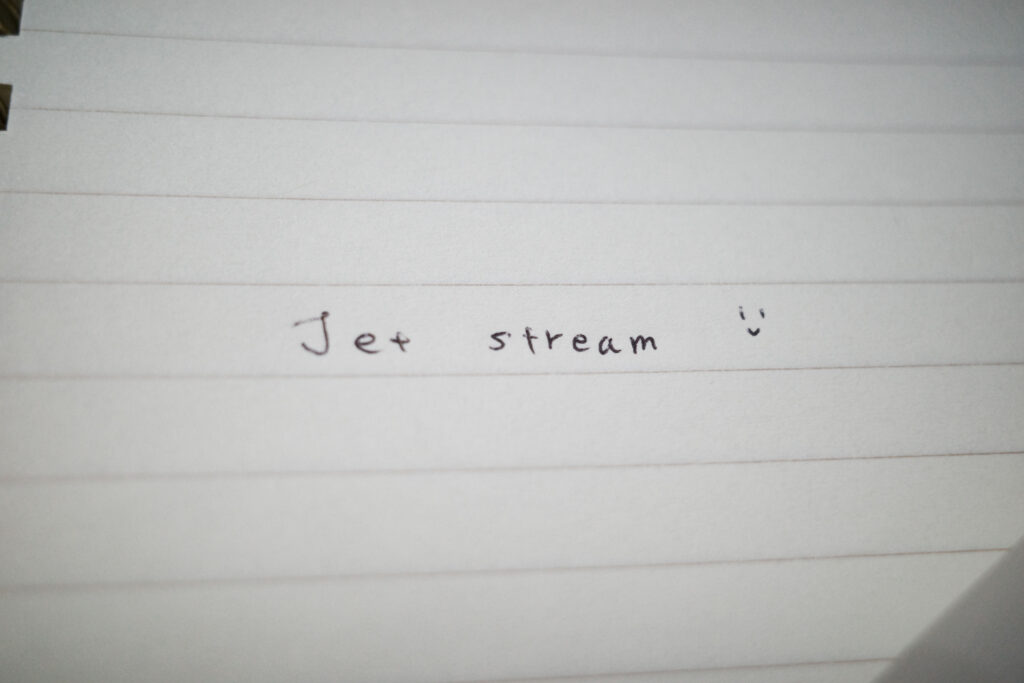 Jet stream